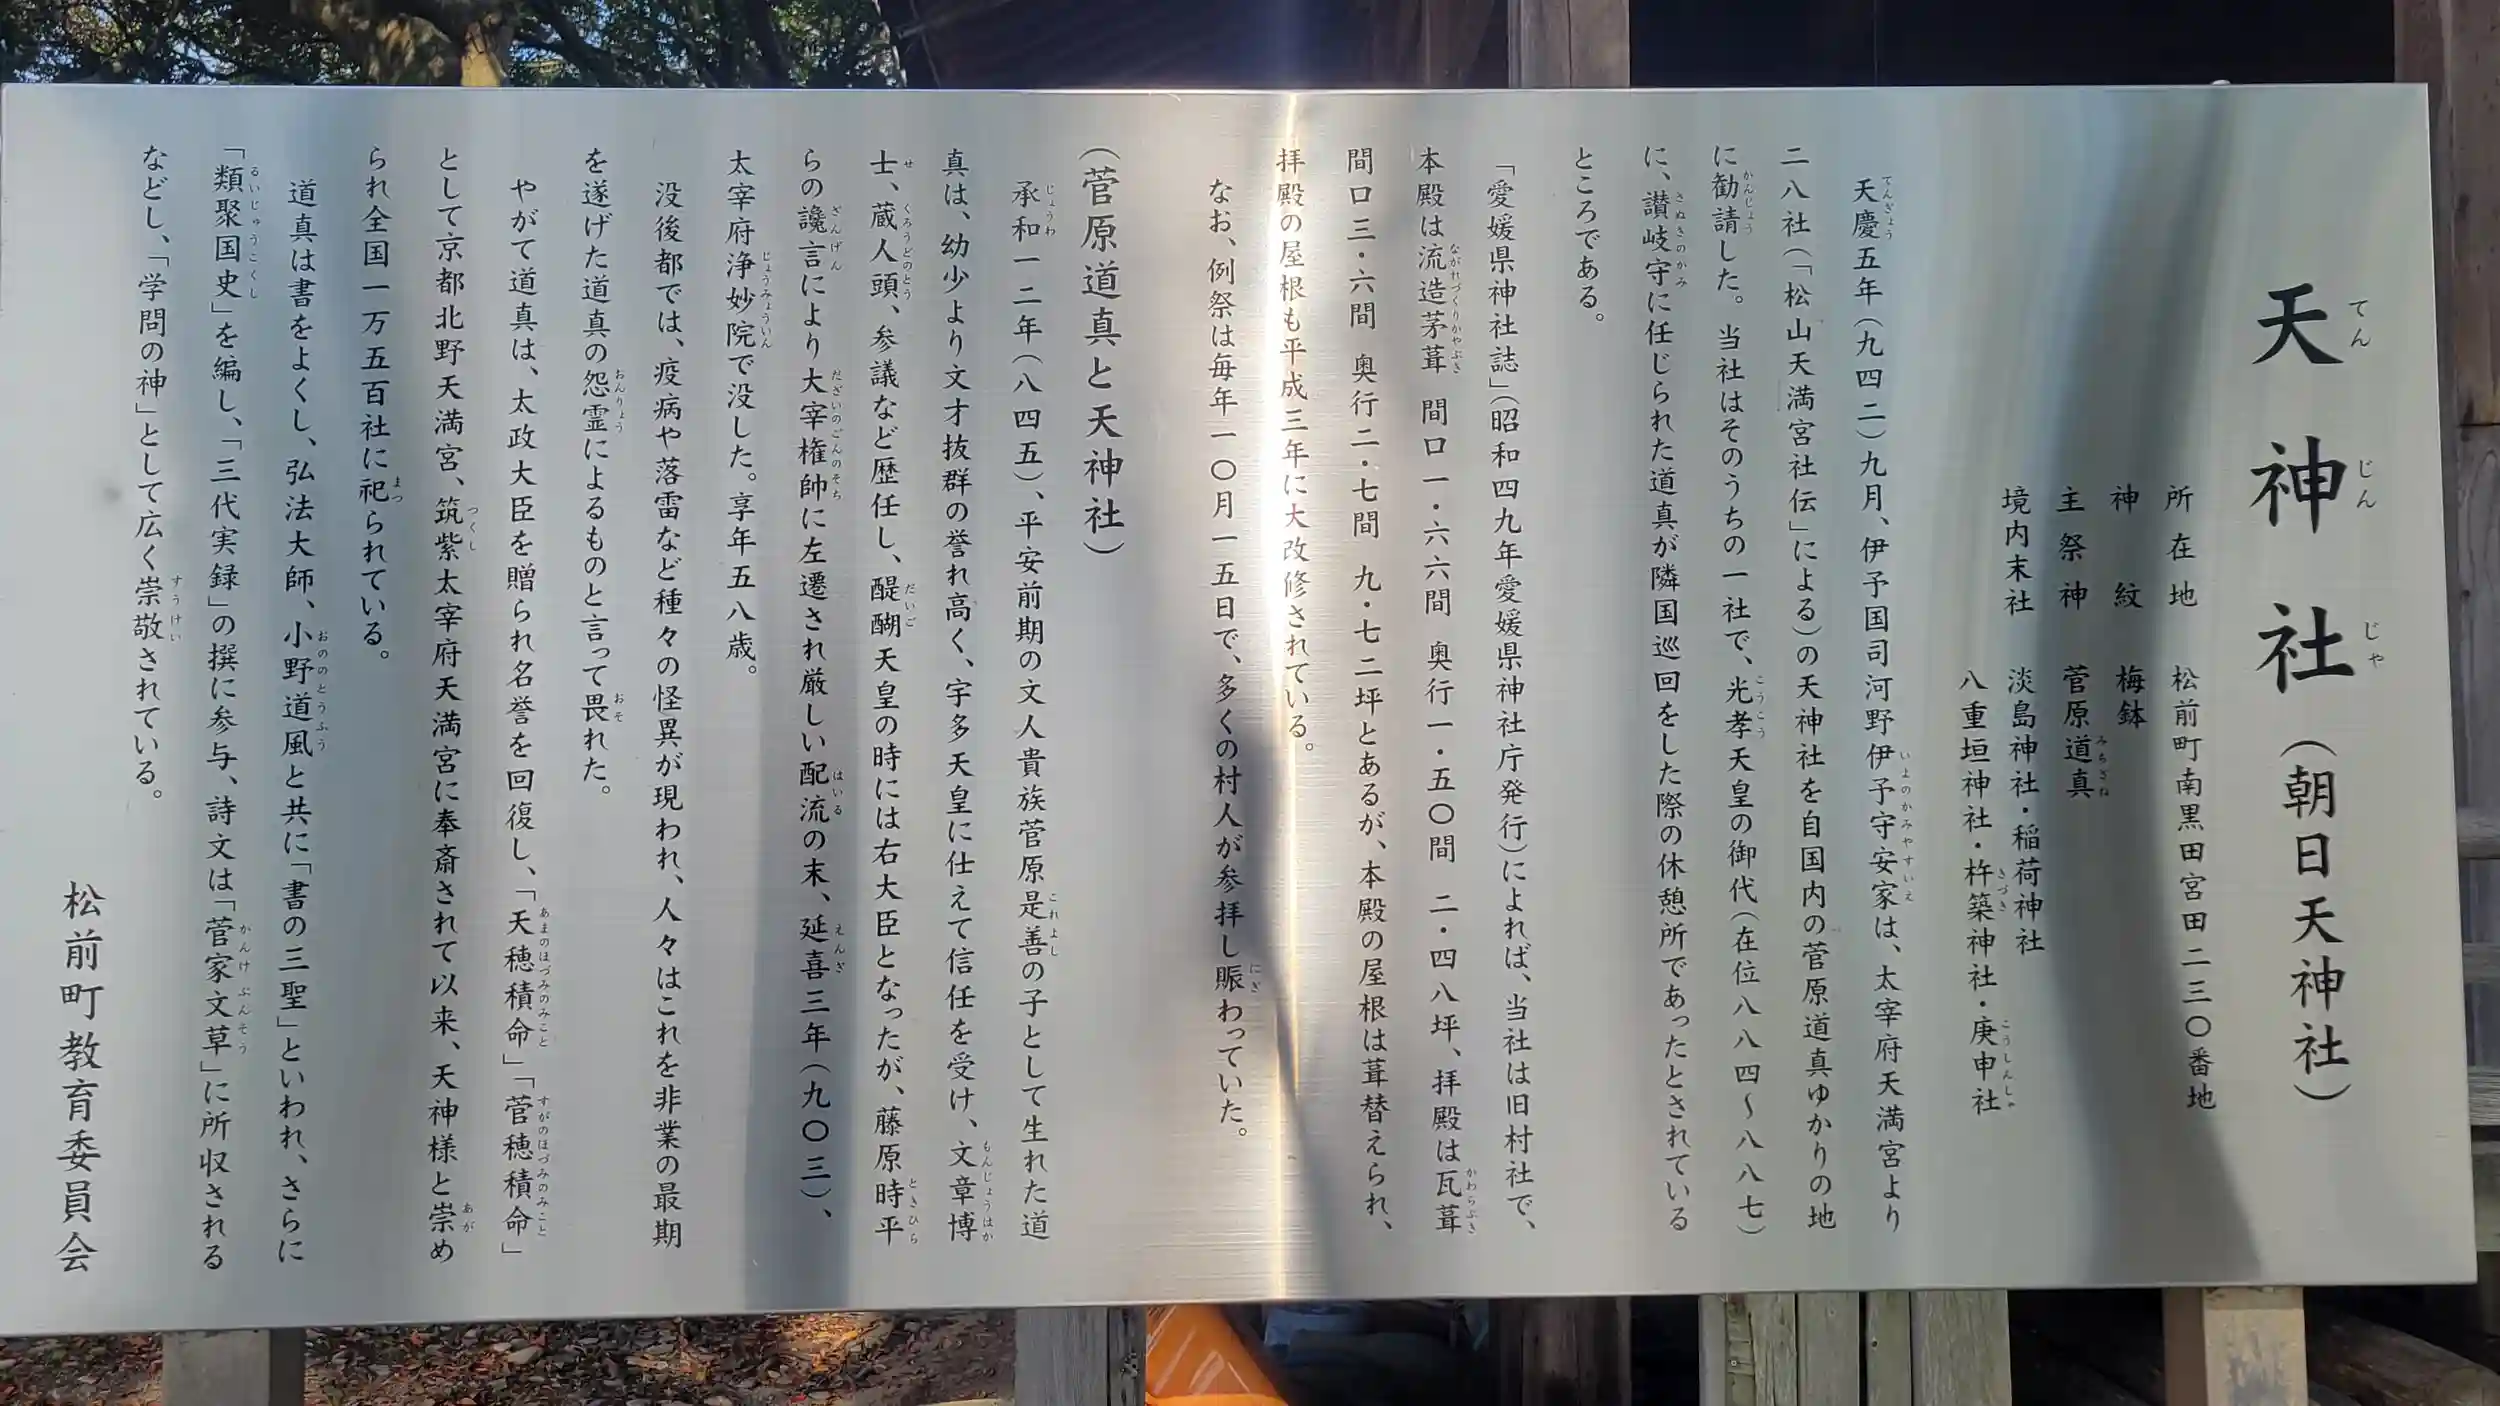 天神社（朝日天神社）
所在地　松前町南黒田宮田二三〇番地
神紋　梅鉢
主祭神　菅原道真
境内末社　淡島神社・稲荷神社
八重垣神社・杵築神社・庚申社
天慶五年（九四二）九月、伊予国司河野伊予守安家は、太宰府天満宮より
二八社（「松山天満宮社伝」による）の天神社を自国内の菅原道真ゆかりの地
に勧請した。当社はそのうちの一社で、光孝天皇の御代（在位八八四～八八七）
に、讃岐守に任じられた道真が隣国巡回をした際の休憩所であったとされている
ところである。
「愛媛県神社誌」（昭和四九年愛媛県神社庁発行）によれば、当社は旧村社で、
本殿は流造茅葺　間口一・六六間　奥行一・五〇間　二・四八坪、拝殿は瓦葺
間口三・六間　奥行二・七間　九・七二坪とあるが、本殿の屋根は葺替えられ、
拝殿の屋根も平成三年に大改修されている。
なお、例祭は毎年一〇月一五日で、多くの村人が参拝し賑わっていた。
（菅原道真と天神社）
承和一二年（八四五）、平安前期の文人貴族菅原是善の子として生れた道
真は、幼少より文才抜群の誉れ高く、宇多天皇に仕えて信任を受け、文章博
士、蔵人頭、参議など歴任し、醍醐天皇の時には右大臣となったが、藤原時平
らの讒言により大宰権帥に左遷され厳しい配流の末、延喜三年（九〇三）、
太宰府浄妙院で没した。享年五八歳。
没後都では、疫病や落雷など種々の怪異が現われ、人々はこれを非業の最期
を遂げた道真の怨霊によるものと言って畏れた。
やがて道真は、太政大臣を贈られ名誉を回復し、「天穂積命」「菅穂積命」
として京都北野天満宮、筑紫太宰府天満宮に奉斎されて以来、天神様と崇め
られ全国一万五百社に祀られている。
道真は書をよくし、弘法大師、小野道風と共に「書の三聖」といわれ、さらに
「類聚国史」を編し、「三代実録」の撰に参与、詩文は「菅家文草」に所収される
などし、「学問の神」として広く崇敬されている。
松前町教育委員会